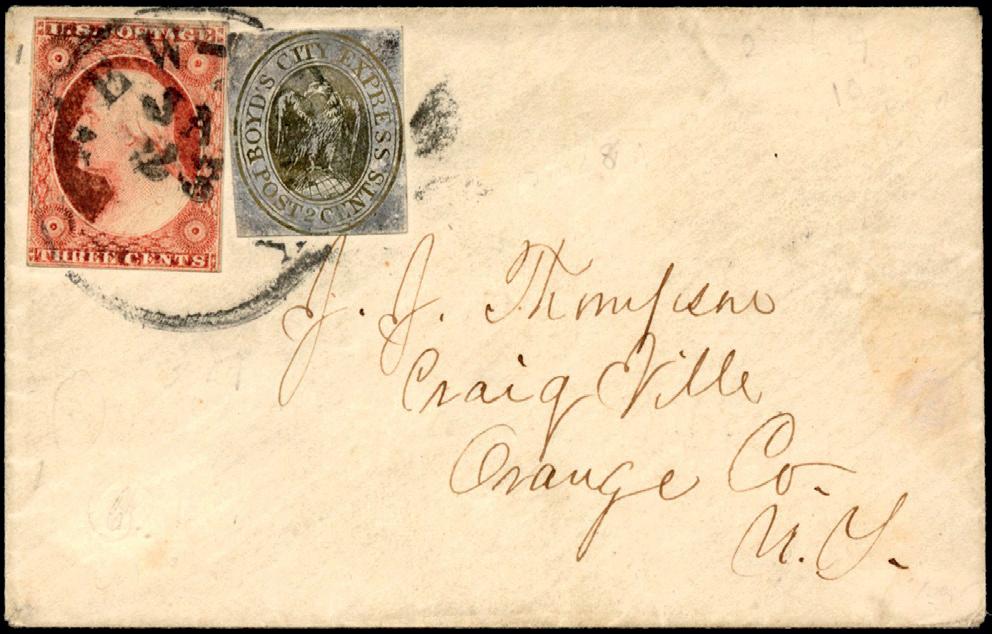 U.S. POSTAGE
THREE CENTS
NEW
JAN
28
BOYD'S CITY EXPRESS
POST 2 CENTS
J. J. Thompson
Craig Ville
Orange Co.
N. Y.